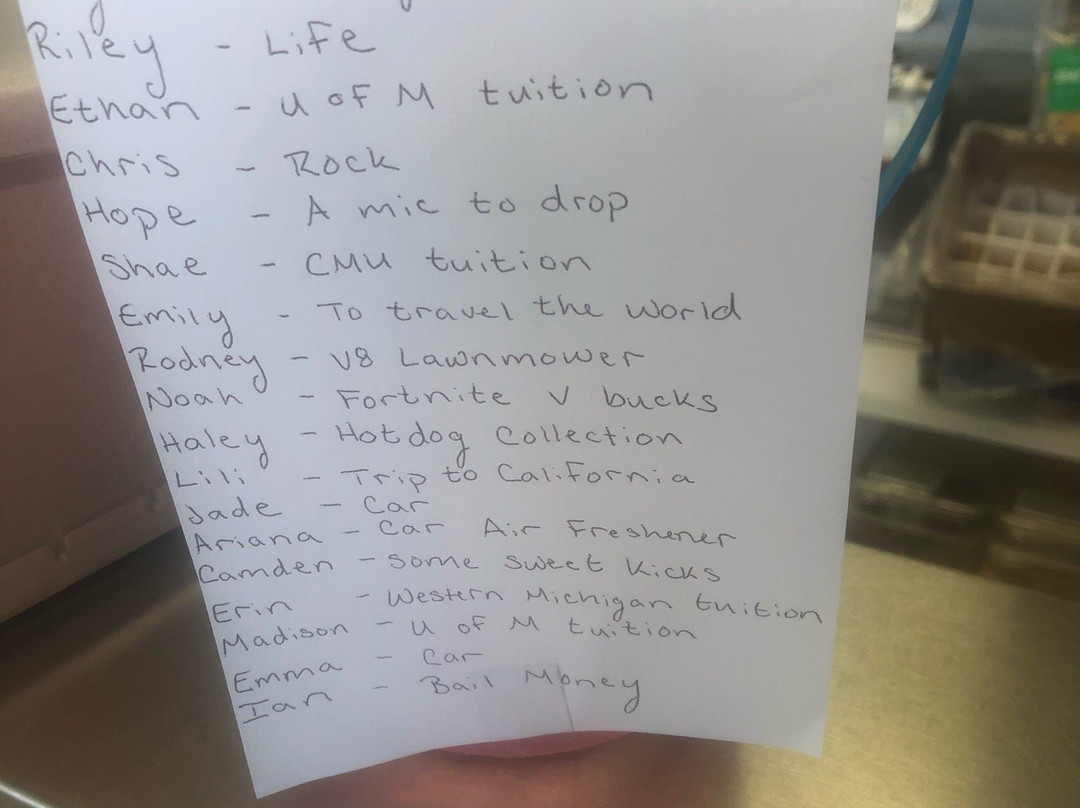 Riley - Life
Ethan - U of M tuition
Chris - Rock
Hope - A mic to drop
Shae - CMU tuition
Emily - To travel the world
Rodney - V8 Lawnmower
Noah - Fortnite V bucks
Haley - Hotdog Collection
Lili - Trip to California
Jade - Car
Ariana - Car Air Freshener
Camden - Some Sweet Kicks
Erin - Western Michigan tuition
Madison - U of M tuition
Emma - Car
Ian - Bail Money